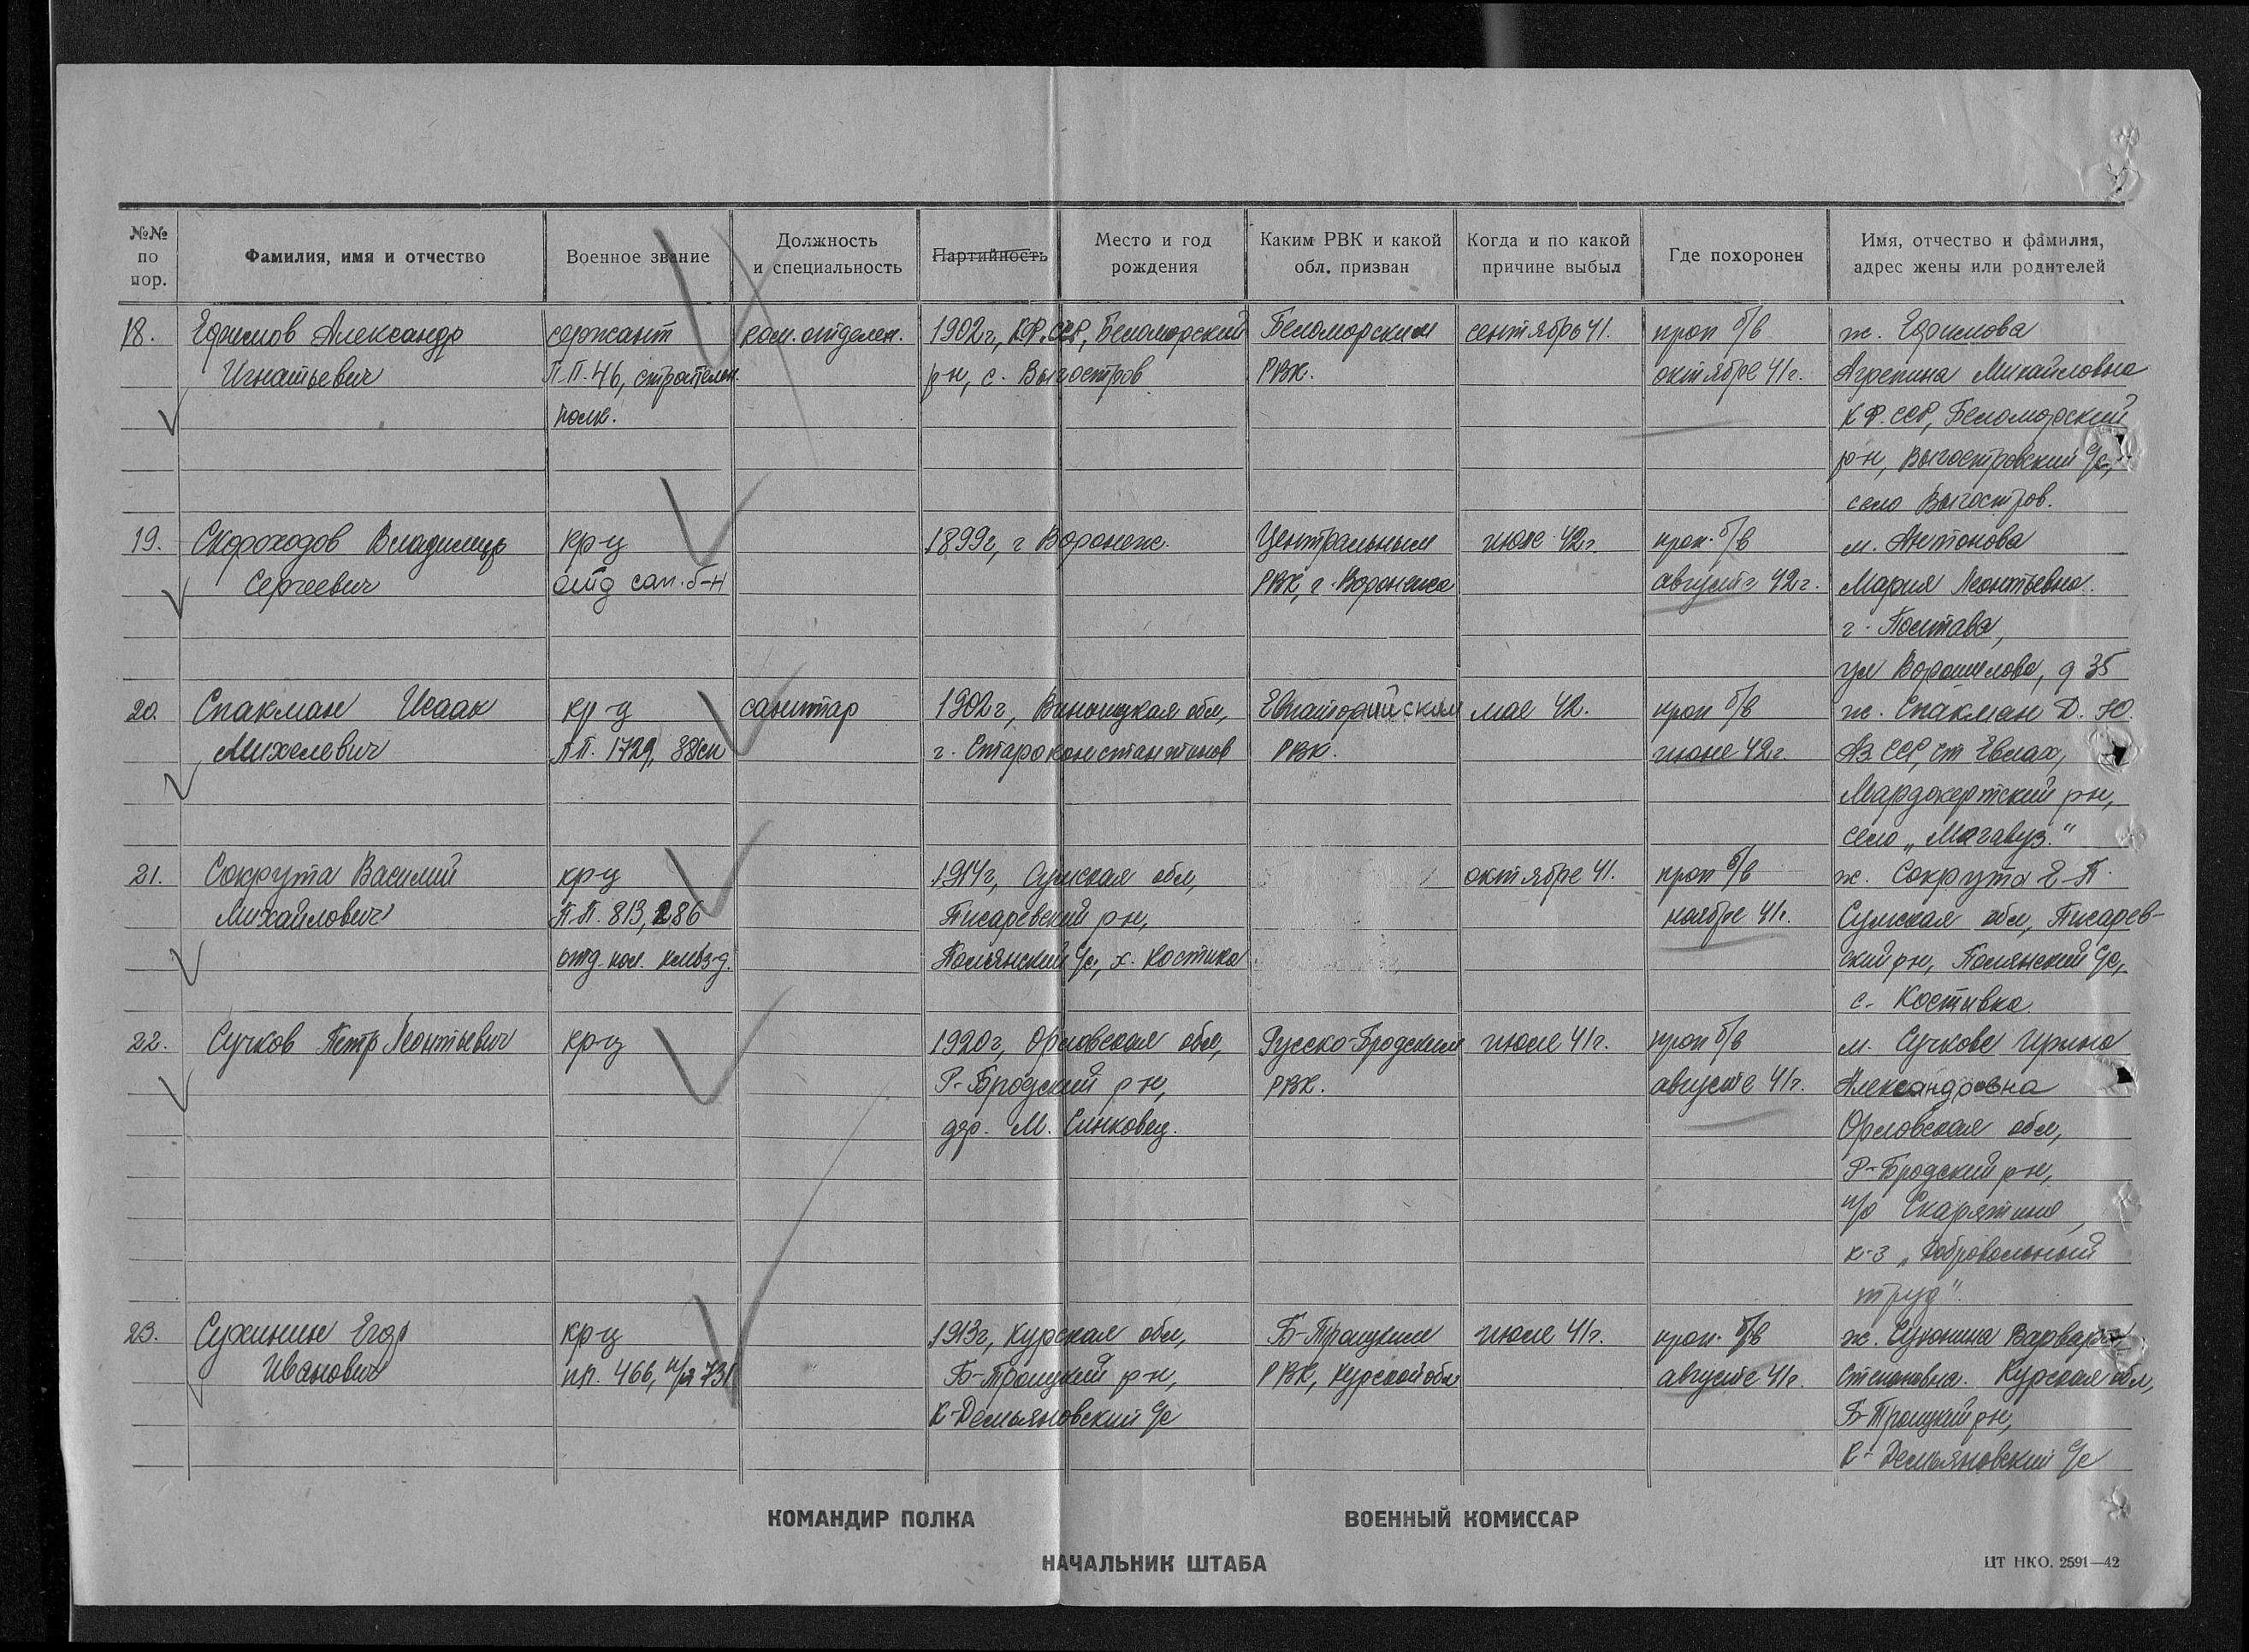 №№ по пор.
Фамилия, имя и отчество
Военное звание
Должность и специальность
Партийность
Место и год рождения
Каким РВК и какой обл. призван
Когда и по какой причине выбыл
Где похоронен
Имя, отчество и фамилия, адрес жены или родителей
18. Ефимов Александр сержант ком. отделен. 1902г, К.Ф.ССР, Беломорский Беломорским сентябрь 41. проп б/в ж. Ефимова
Игнатьевич П.П. 46, строителен. р-н, с. Выгостров РВК. октябре 41г. Агрепина Михайловна
полк. К.Ф.ССР, Беломорский
р-н, Выгостровский с/с,
село Выгостров.
19. Скороходов Владимир кр-ц 1899г, г Воронеж. Центральным июле 42г. проп. б/в м. Антонова
Сергеевич отд сап. б-н РВК, г. Воронежа августе 42г. Мария Леонтьевна.
г. Полтава,
ул Ворошилова, д 35
20. Спакман Исаак кр-ц санитар 1902г, Винницкая обл, Евпаторийским мае 42. проп б/в ж. Спакман Д. Ю.
Михелевич П.П. 1729, г. Староконстантинов РВК. июне 42г. Аз. ССР, ст Евлах,
Мардокертский р-н,
село „Магавуз."
21. Сокрута Василий кр-ц 1914г, Сумская обл, октябре 41. проп б/в ж. Сокрута Е-П.
Михайлович П.П. 813, 286 Писаревский р-н, ноябре 41г. Сумская обл, Писарев-
отд. Полянский с/с, х. Костика ский р-н, Полянский с/с,
с. Костивка
22. Сучков Петр Леонтьевич кр-ц 1920г, Орловская обл, Русско-Бродским июле 41г. проп б/в м. Сучкова Ирина
Р-Бродский р-н, РВК. августе 41г. Александровна
дер. М. Синковец. Орловская обл,
Р-Бродский р-н,
п/о Скарятино,
к-з „Добровольный
труд"
23. Сухинин Егор кр-ц 1913г, Курская обл, Б-Троицким июле 41г. проп. б/в ж. Варвара
Иванович пп. 466, п/я 731 Б-Троицкий р-н, РВК, Курской обл августе 41г. Степановна. Курская обл,
К-Демьяновский с/с Б-Троицкий р-н,
К-Демьяновский с/с
КОМАНДИР ПОЛКА
ВОЕННЫЙ КОМИССАР
НАЧАЛЬНИК ШТАБА
ЦТ НКО. 2591—42